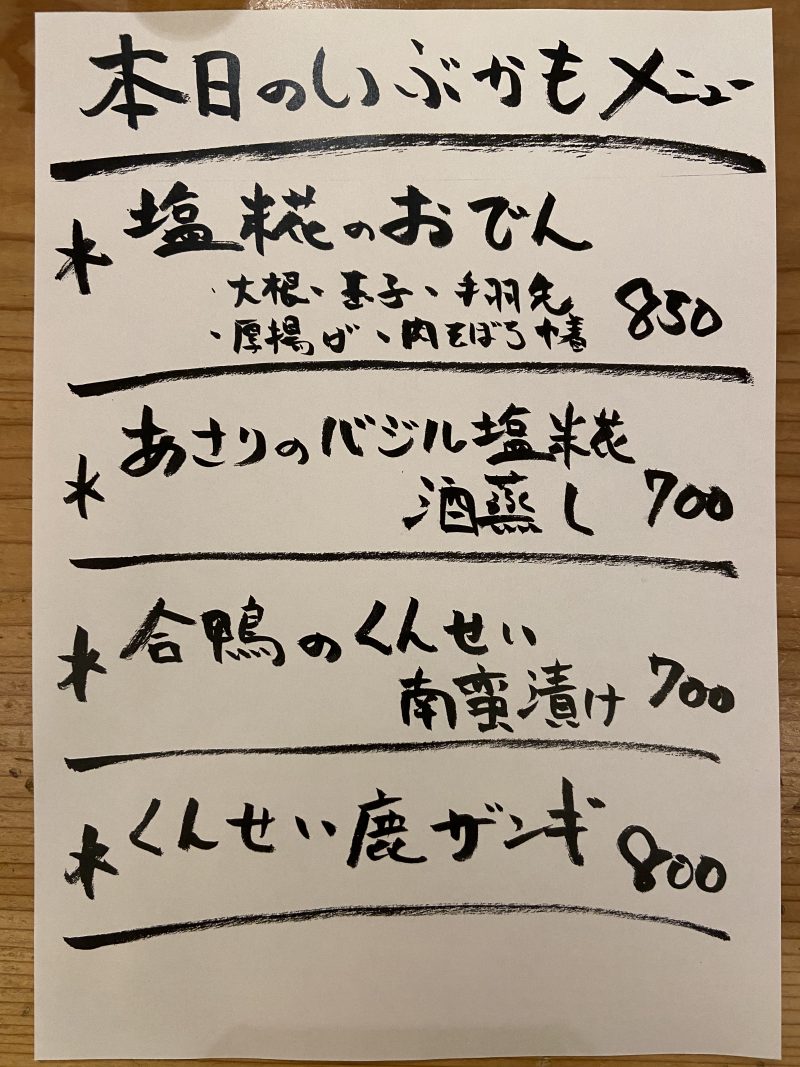 本日のいぶかもメニュー
* 塩糀のおでん
・大根、基子、手羽先 850
・厚揚げ、肉そぼろ巾着
* あさりのバジル塩糀
酒蒸し 700
* 合鴨のくんせい
南蛮漬け 700
* くんせい鹿ザンギ 800